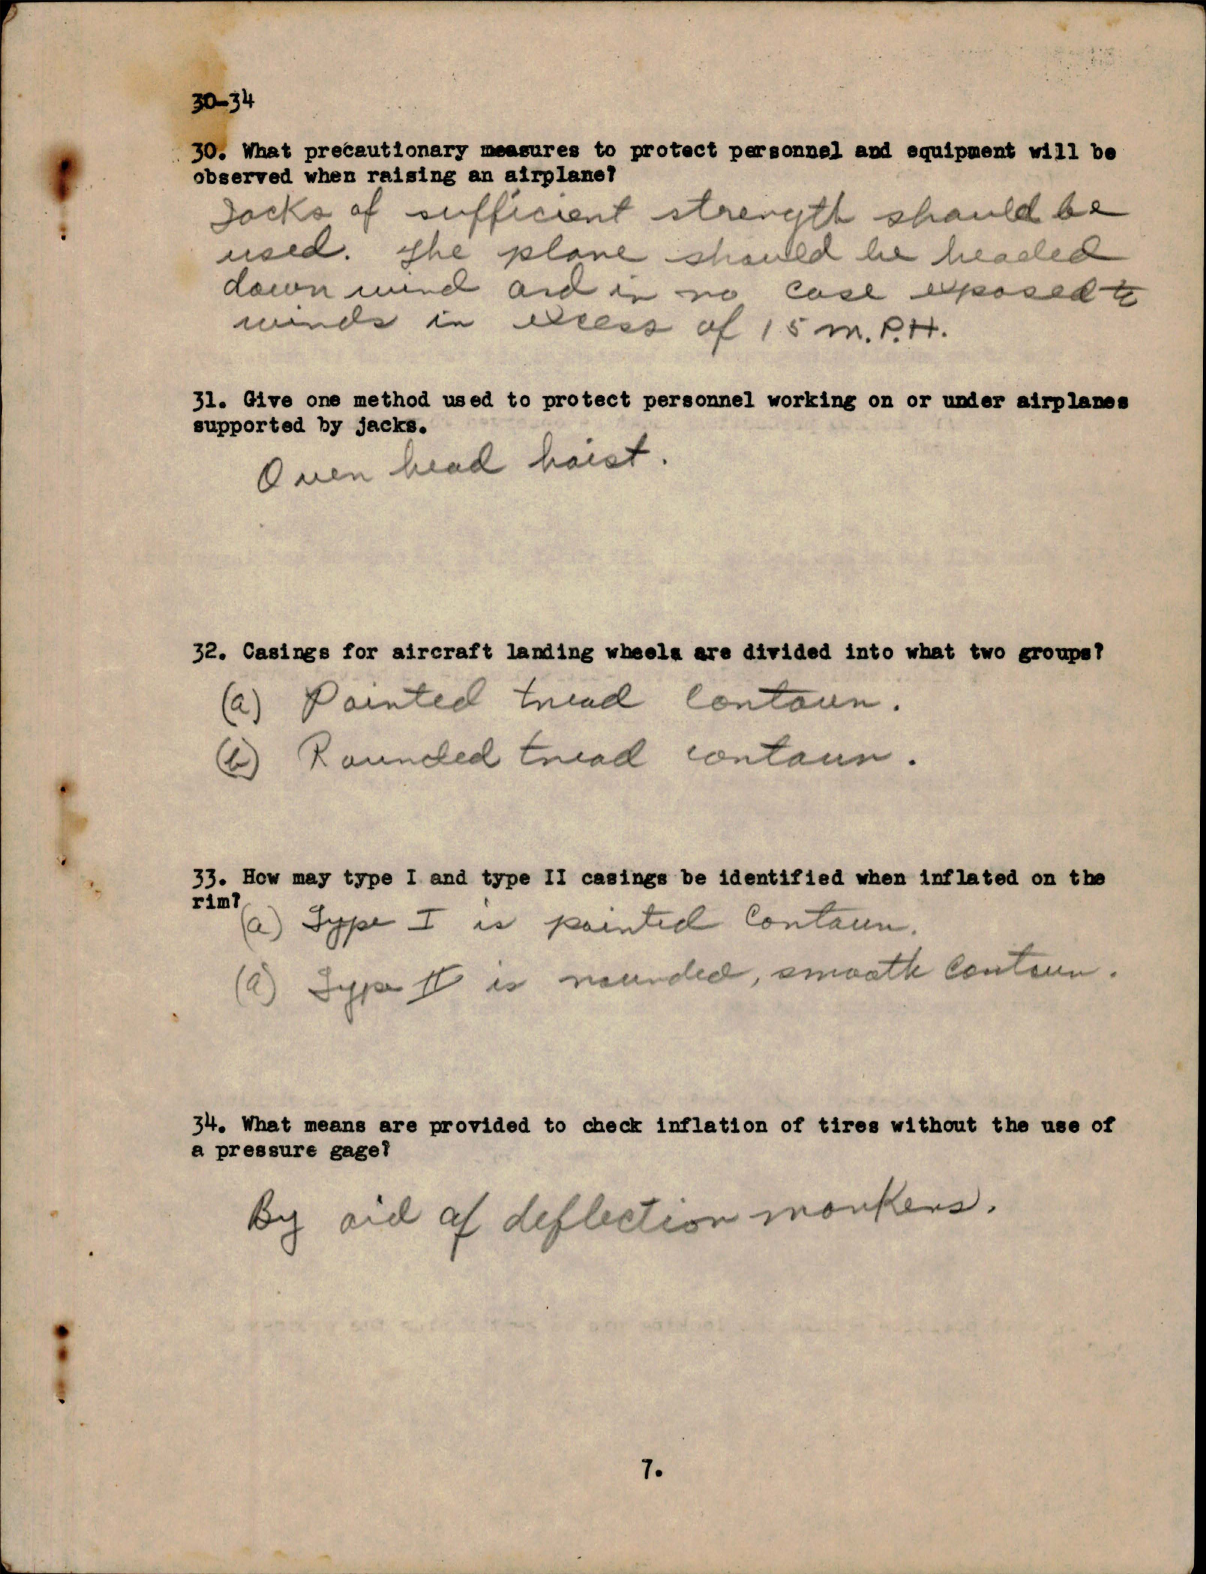 30-34
30. What precautionary measures to protect personnel and equipment will be
observed when raising an airplane?
Jacks of sufficient strength should be
used. The plane should be headed
down wind and in no case exposed to
winds in excess of 15 M.P.H.
31. Give one method used to protect personnel working on or under airplanes
supported by jacks.
Over head hoist.
32. Casings for aircraft landing wheels are divided into what two groups?
(a) Pointed tread contour.
(b) Rounded tread contour.
33. How may type I and type II casings be identified when inflated on the
rim?
(a) Type I is pointed contour.
(a) Type II is rounded, smooth contour.
34. What means are provided to check inflation of tires without the use of
a pressure gage?
By aid of deflection markers.
7.